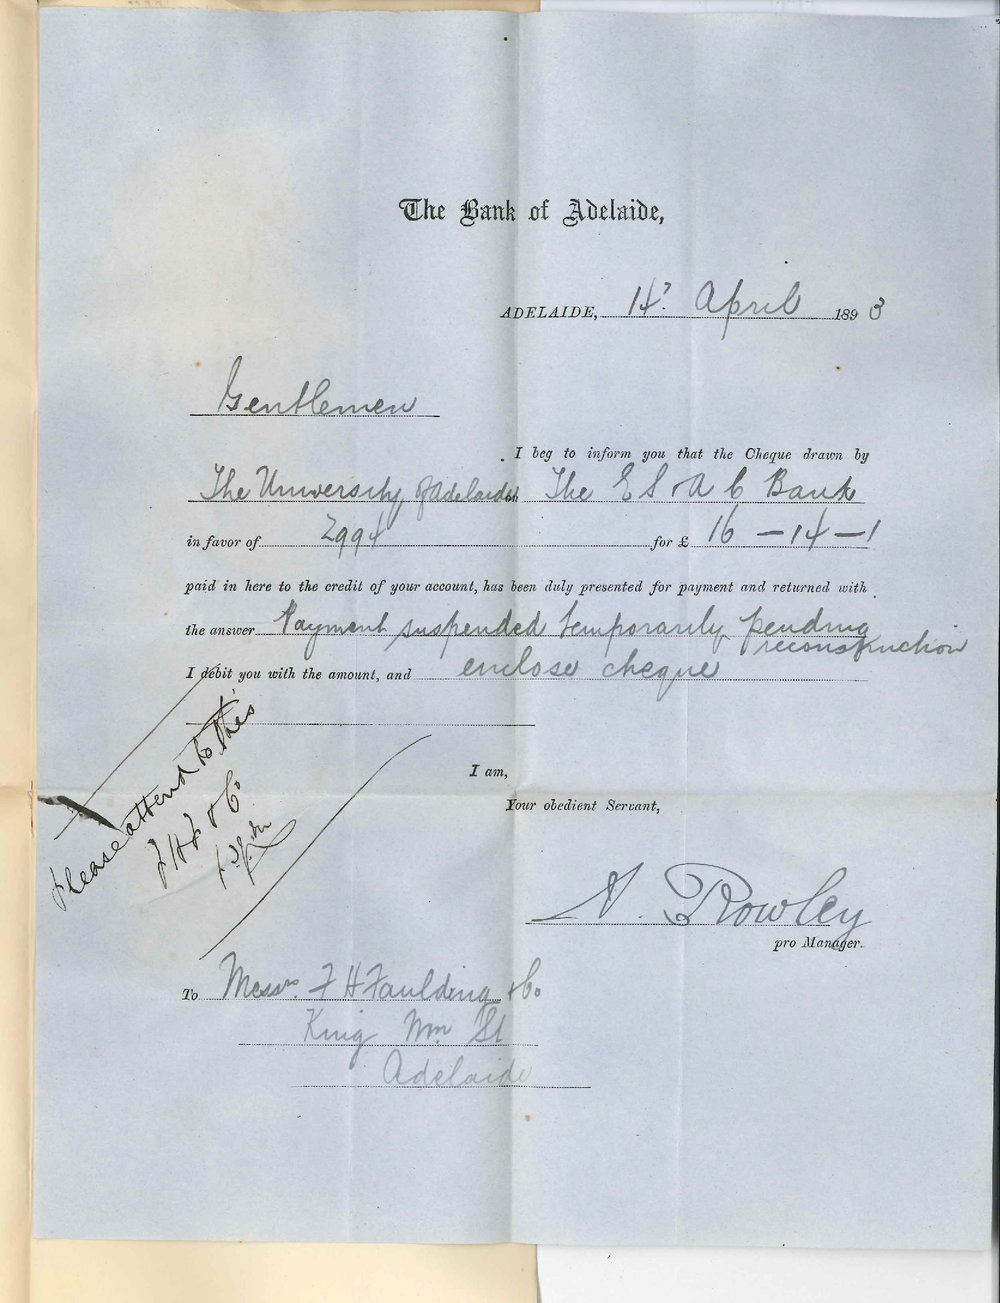 The Bank of Adelaide,
ADELAIDE, 14 April 1893
Gentlemen
I beg to inform you that the Cheque drawn by
The University of Adelaide on The E S & A C Bank
in favor of 2994 for £ 16-14-1
paid in here to the credit of your account, has been duly presented for payment and returned with
the answer Payment suspended temporarily pending
reconstruction
I debit you with the amount, and enclose cheque
Please attend to this
F H F & Co
I am,
Your obedient Servant,
Rowley
pro Manager.
To Messrs. F H Faulding & Co
King Wm St
Adelaide